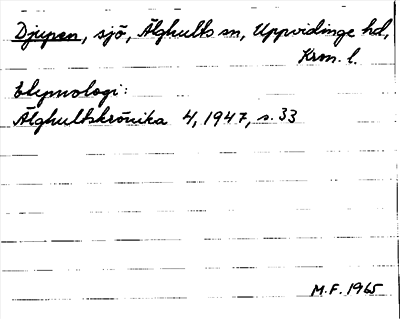 Djupen, sjö, Älghults sn, Uppvidinge hd,
Krm. l.
Etymologi:
Älghultskrönika 4, 1947, s. 33
M.F. 1965